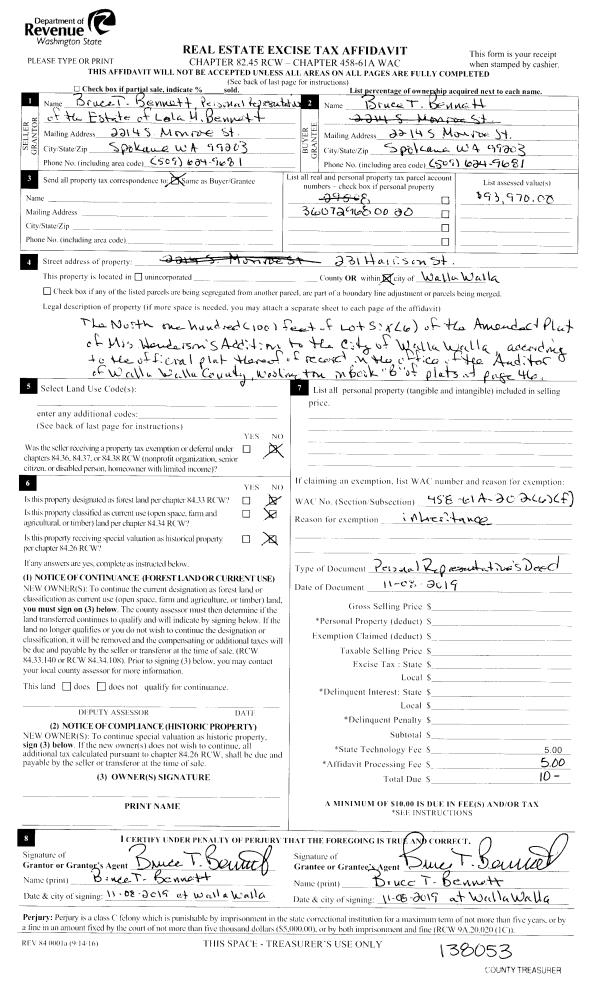 Department of
Revenue
Washington State
PLEASE TYPE OR PRINT
REAL ESTATE EXCISE TAX AFFIDAVIT
CHAPTER 82.45 RCW – CHAPTER 458-61A WAC
This form is your receipt
when stamped by cashier.
THIS AFFIDAVIT WILL NOT BE ACCEPTED UNLESS ALL AREAS ON ALL PAGES ARE FULLY COMPLETED
(See back of last page for instructions)
Check box if partial sale, indicate % sold.
List percentage of ownership acquired next to each name.
1
SELLER
GRANTOR
Name Bruce T. Bennett, Personal Representative
of the Estate of Lola H. Bennett
Mailing Address 2214 S Monroe St.
City/State/Zip Spokane WA 99203
Phone No. (including area code) (509) 624-9681
2
BUYER
GRANTEE
Name Bruce T. Bennett
2214 S. Monroe St.
Mailing Address 2214 S Monroe St.
City/State/Zip Spokane WA 99203
Phone No. (including area code) (509) 624-9681
3
Send all property tax correspondence to: Same as Buyer/Grantee
Name
Mailing Address
City/State/Zip
Phone No. (including area code)
List all real and personal property tax parcel account
numbers – check box if personal property
360729680020
List assessed value(s)
$93,970.00
4
Street address of property: 2214 S. Monroe St 231 Harrison St.
This property is located in unincorporated County OR within city of Walla Walla
Check box if any of the listed parcels are being segregated from another parcel, are part of a boundary line adjustment or parcels being merged.
Legal description of property (if more space is needed, you may attach a separate sheet to each page of the affidavit)
The North one hundred (100) feet of Lot Six (6) of the Amended Plat
of Mrs Henderson's Addition to the City of Walla Walla, according
to the official plat thereof of record in the office of the Auditor
of Walla Walla County, Washington in book "B" of plats at page 46.
5
Select Land Use Code(s):
enter any additional codes:
(See back of last page for instructions)
YES NO
Was the seller receiving a property tax exemption or deferral under
chapters 84.36, 84.37, or 84.38 RCW (nonprofit organization, senior
citizen, or disabled person, homeowner with limited income)?
6
YES NO
Is this property designated as forest land per chapter 84.33 RCW?
Is this property classified as current use (open space, farm and
agricultural, or timber) land per chapter 84.34 RCW?
Is this property receiving special valuation as historical property
per chapter 84.26 RCW?
If any answers are yes, complete as instructed below.
(1) NOTICE OF CONTINUANCE (FOREST LAND OR CURRENT USE)
NEW OWNER(S): To continue the current designation as forest land or
classification as current use (open space, farm and agriculture, or timber) land,
you must sign on (3) below. The county assessor must then determine if the
land transferred continues to qualify and will indicate by signing below. If the
land no longer qualifies or you do not wish to continue the designation or
classification, it will be removed and the compensating or additional taxes will
be due and payable by the seller or transferor at the time of sale. (RCW
84.33.140 or RCW 84.34.108). Prior to signing (3) below, you may contact
your local county assessor for more information.
This land does does not qualify for continuance.
DEPUTY ASSESSOR DATE
(2) NOTICE OF COMPLIANCE (HISTORIC PROPERTY)
NEW OWNER(S): To continue special valuation as historic property,
sign (3) below. If the new owner(s) does not wish to continue, all
additional tax calculated pursuant to chapter 84.26 RCW, shall be due and
payable by the seller or transferor at the time of sale.
(3) OWNER(S) SIGNATURE
PRINT NAME
7
List all personal property (tangible and intangible) included in selling
price.
If claiming an exemption, list WAC number and reason for exemption:
WAC No. (Section/Subsection) 458-61A-202(6)(f)
Reason for exemption inheritance
Type of Document Personal Representative's Deed
Date of Document 11-08-2019
Gross Selling Price $
*Personal Property (deduct) $
Exemption Claimed (deduct) $
Taxable Selling Price $
Excise Tax : State $
Local $
*Delinquent Interest: State $
Local $
*Delinquent Penalty $
Subtotal $
*State Technology Fee $ 5.00
*Affidavit Processing Fee $ 5.00
Total Due $ 10 -
A MINIMUM OF $10.00 IS DUE IN FEE(S) AND/OR TAX
*SEE INSTRUCTIONS
8
I CERTIFY UNDER PENALTY OF PERJURY THAT THE FOREGOING IS TRUE AND CORRECT.
Signature of
Grantor or Grantor's Agent Bruce T. Bennett
Name (print) Bruce T. Bennett
Date & city of signing: 11-08-2019 at Walla Walla
Signature of
Grantee or Grantee's Agent Bruce T. Bennett
Name (print) Bruce T. Bennett
Date & city of signing: 11-08-2019 at Walla Walla
Perjury: Perjury is a class C felony which is punishable by imprisonment in the state correctional institution for a maximum term of not more than five years, or by
a fine in an amount fixed by the court of not more than five thousand dollars ($5,000.00), or by both imprisonment and fine (RCW 9A.20.020 (1C)).
REV 84 0001a (9/14/16)
THIS SPACE - TREASURER'S USE ONLY
138053
COUNTY TREASURER